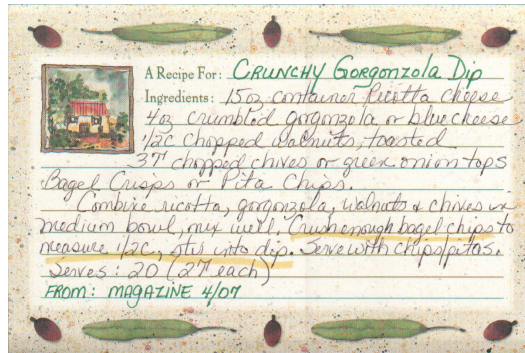 A Recipe For: CRUNCHY GORGONZOLA DIP
Ingredients: 15oz container Ricotta cheese
4oz crumbled gorgonzola or blue cheese
1/2C chopped walnuts, toasted
3T chopped chives or green onion tops
Bagel Crisps or Pita Chips.
Combine ricotta, gorgonzola, walnuts & chives in
medium bowl, mix well. Crush enough bagel chips to
measure 1/2C, stir into dip. Serve with chips/pitas.
Serves: 20 (2T each)
FROM: MAGAZINE 4/07